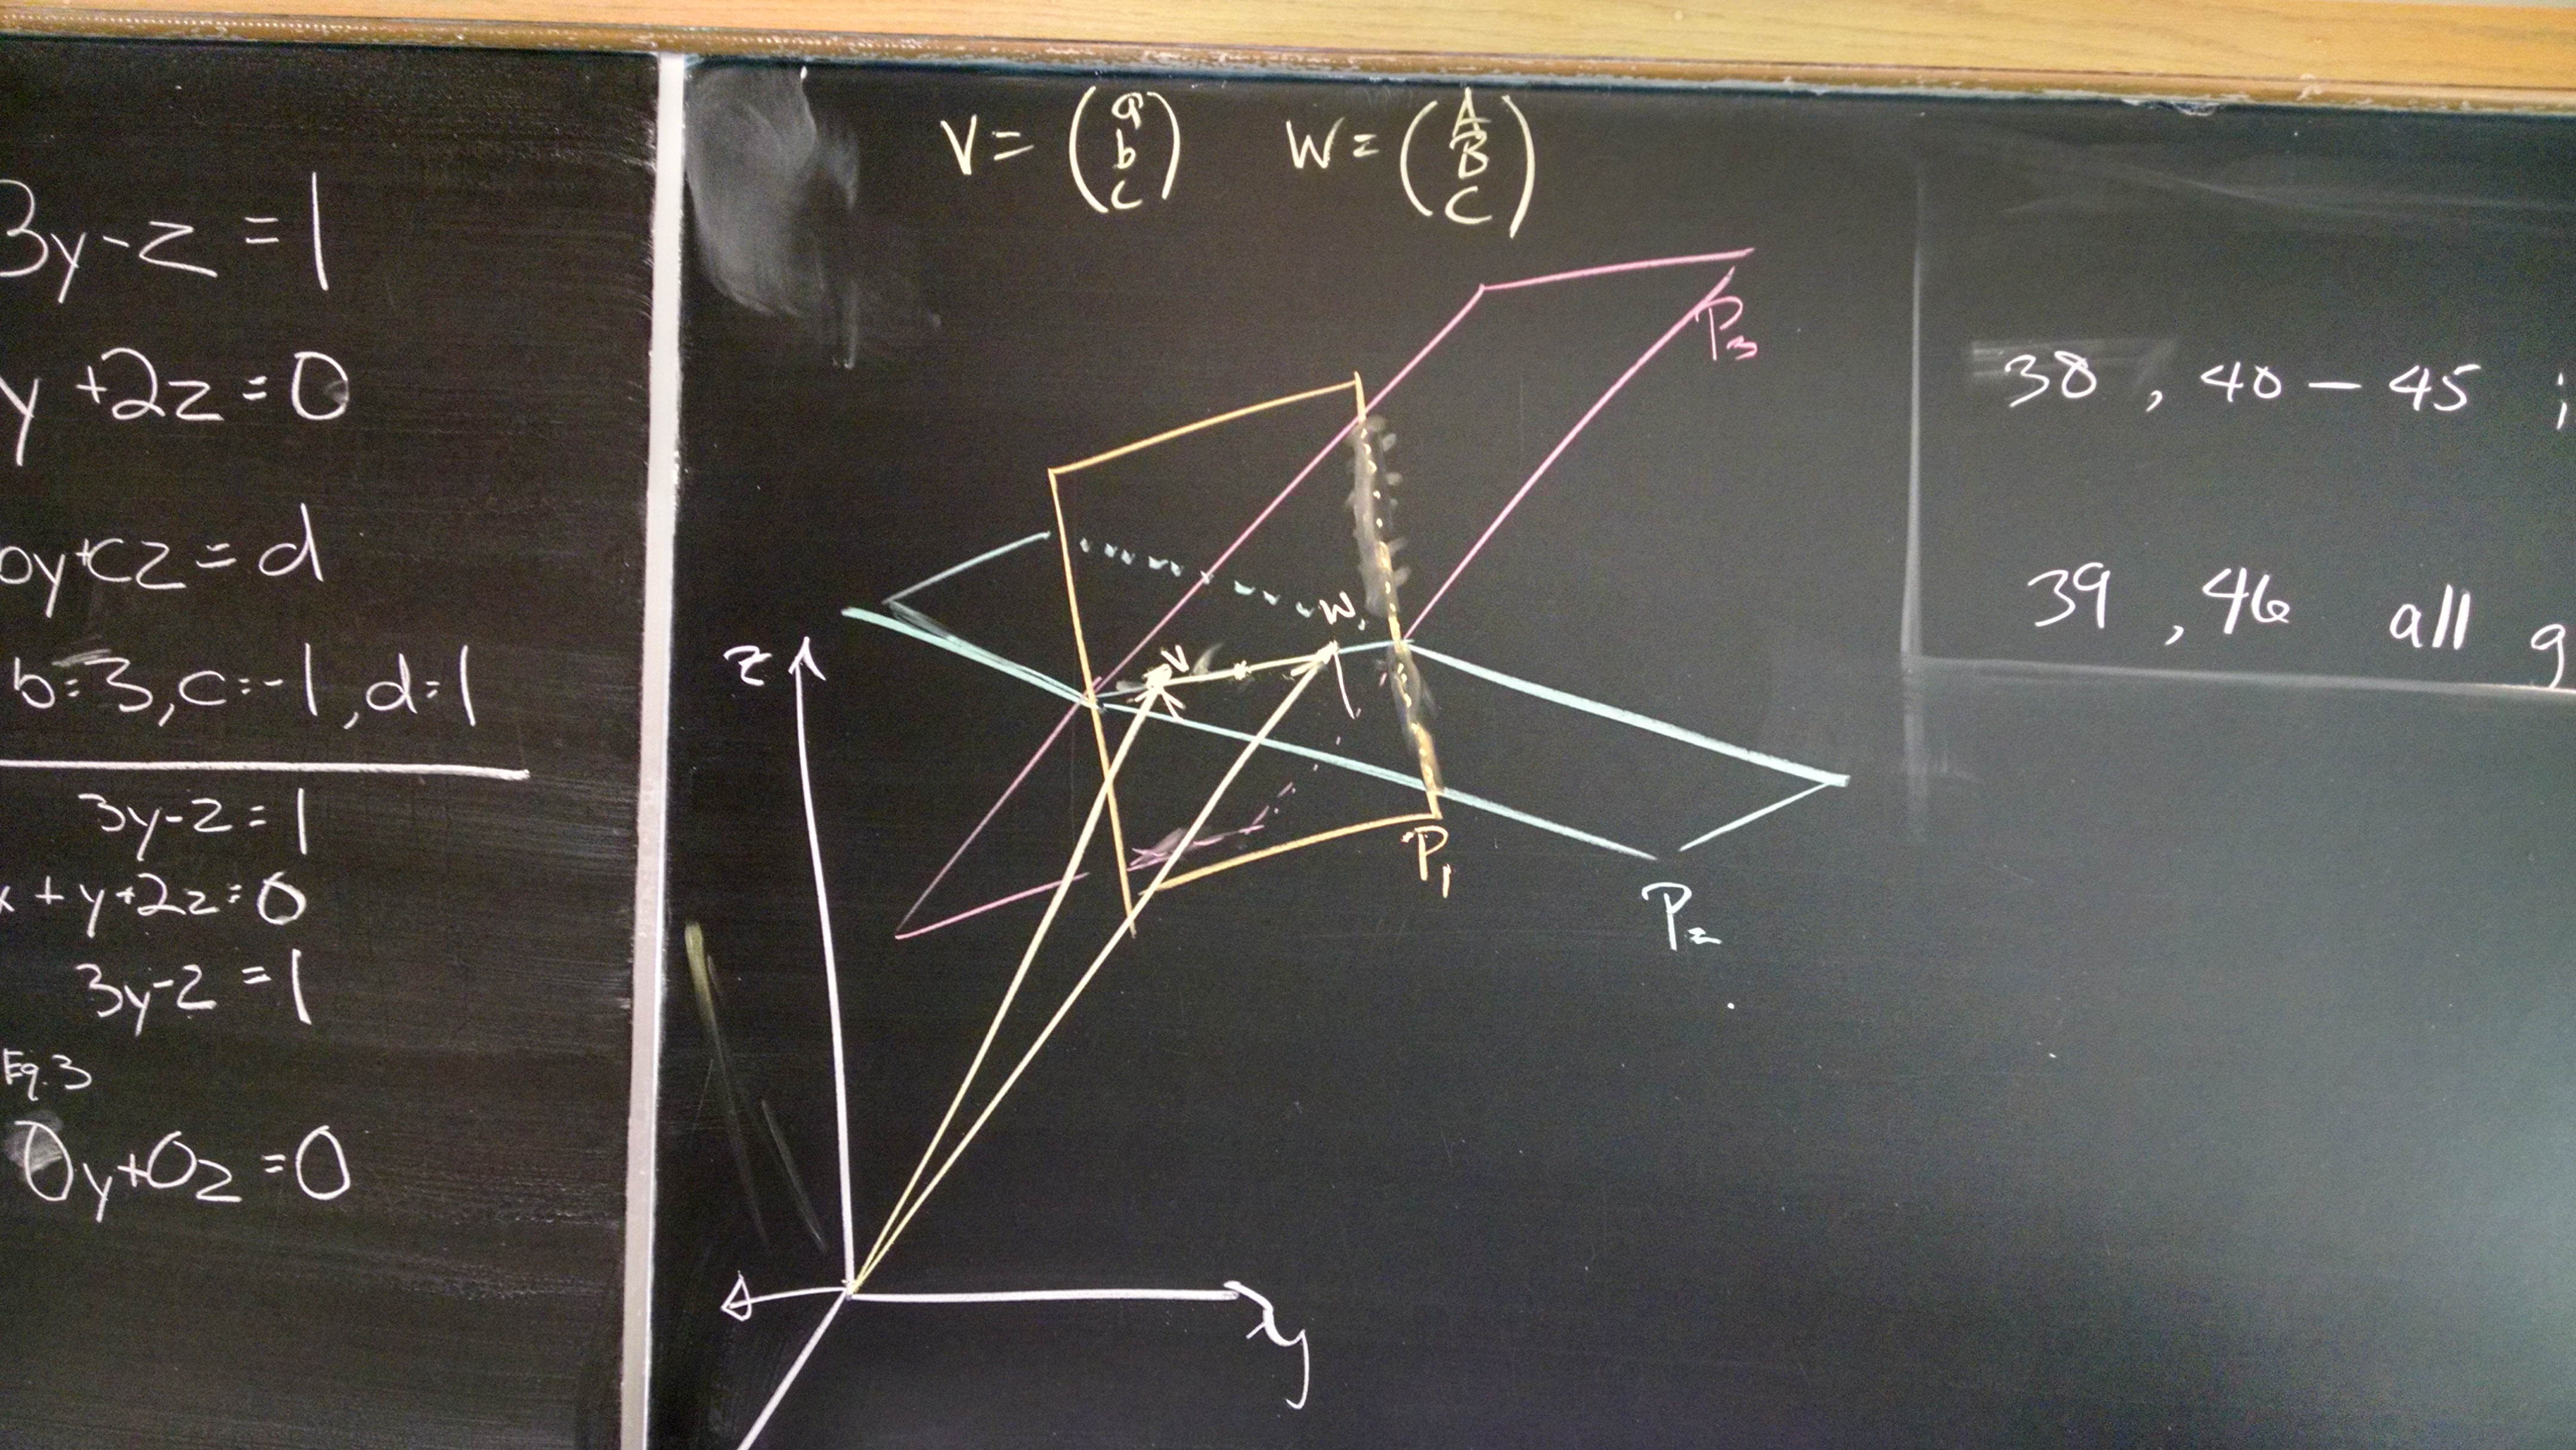 3y-z=1
y+2z=0
by+cz=d
b=3,c=-1,d=1
3y-z=1
x+y+2z=0
3y-z=1
Eq.3
0y+0z=0
V=(a b c) W=(A B C)
P3
W
V
z
P1
P2
y
38, 40-45 ;
39, 46 all g